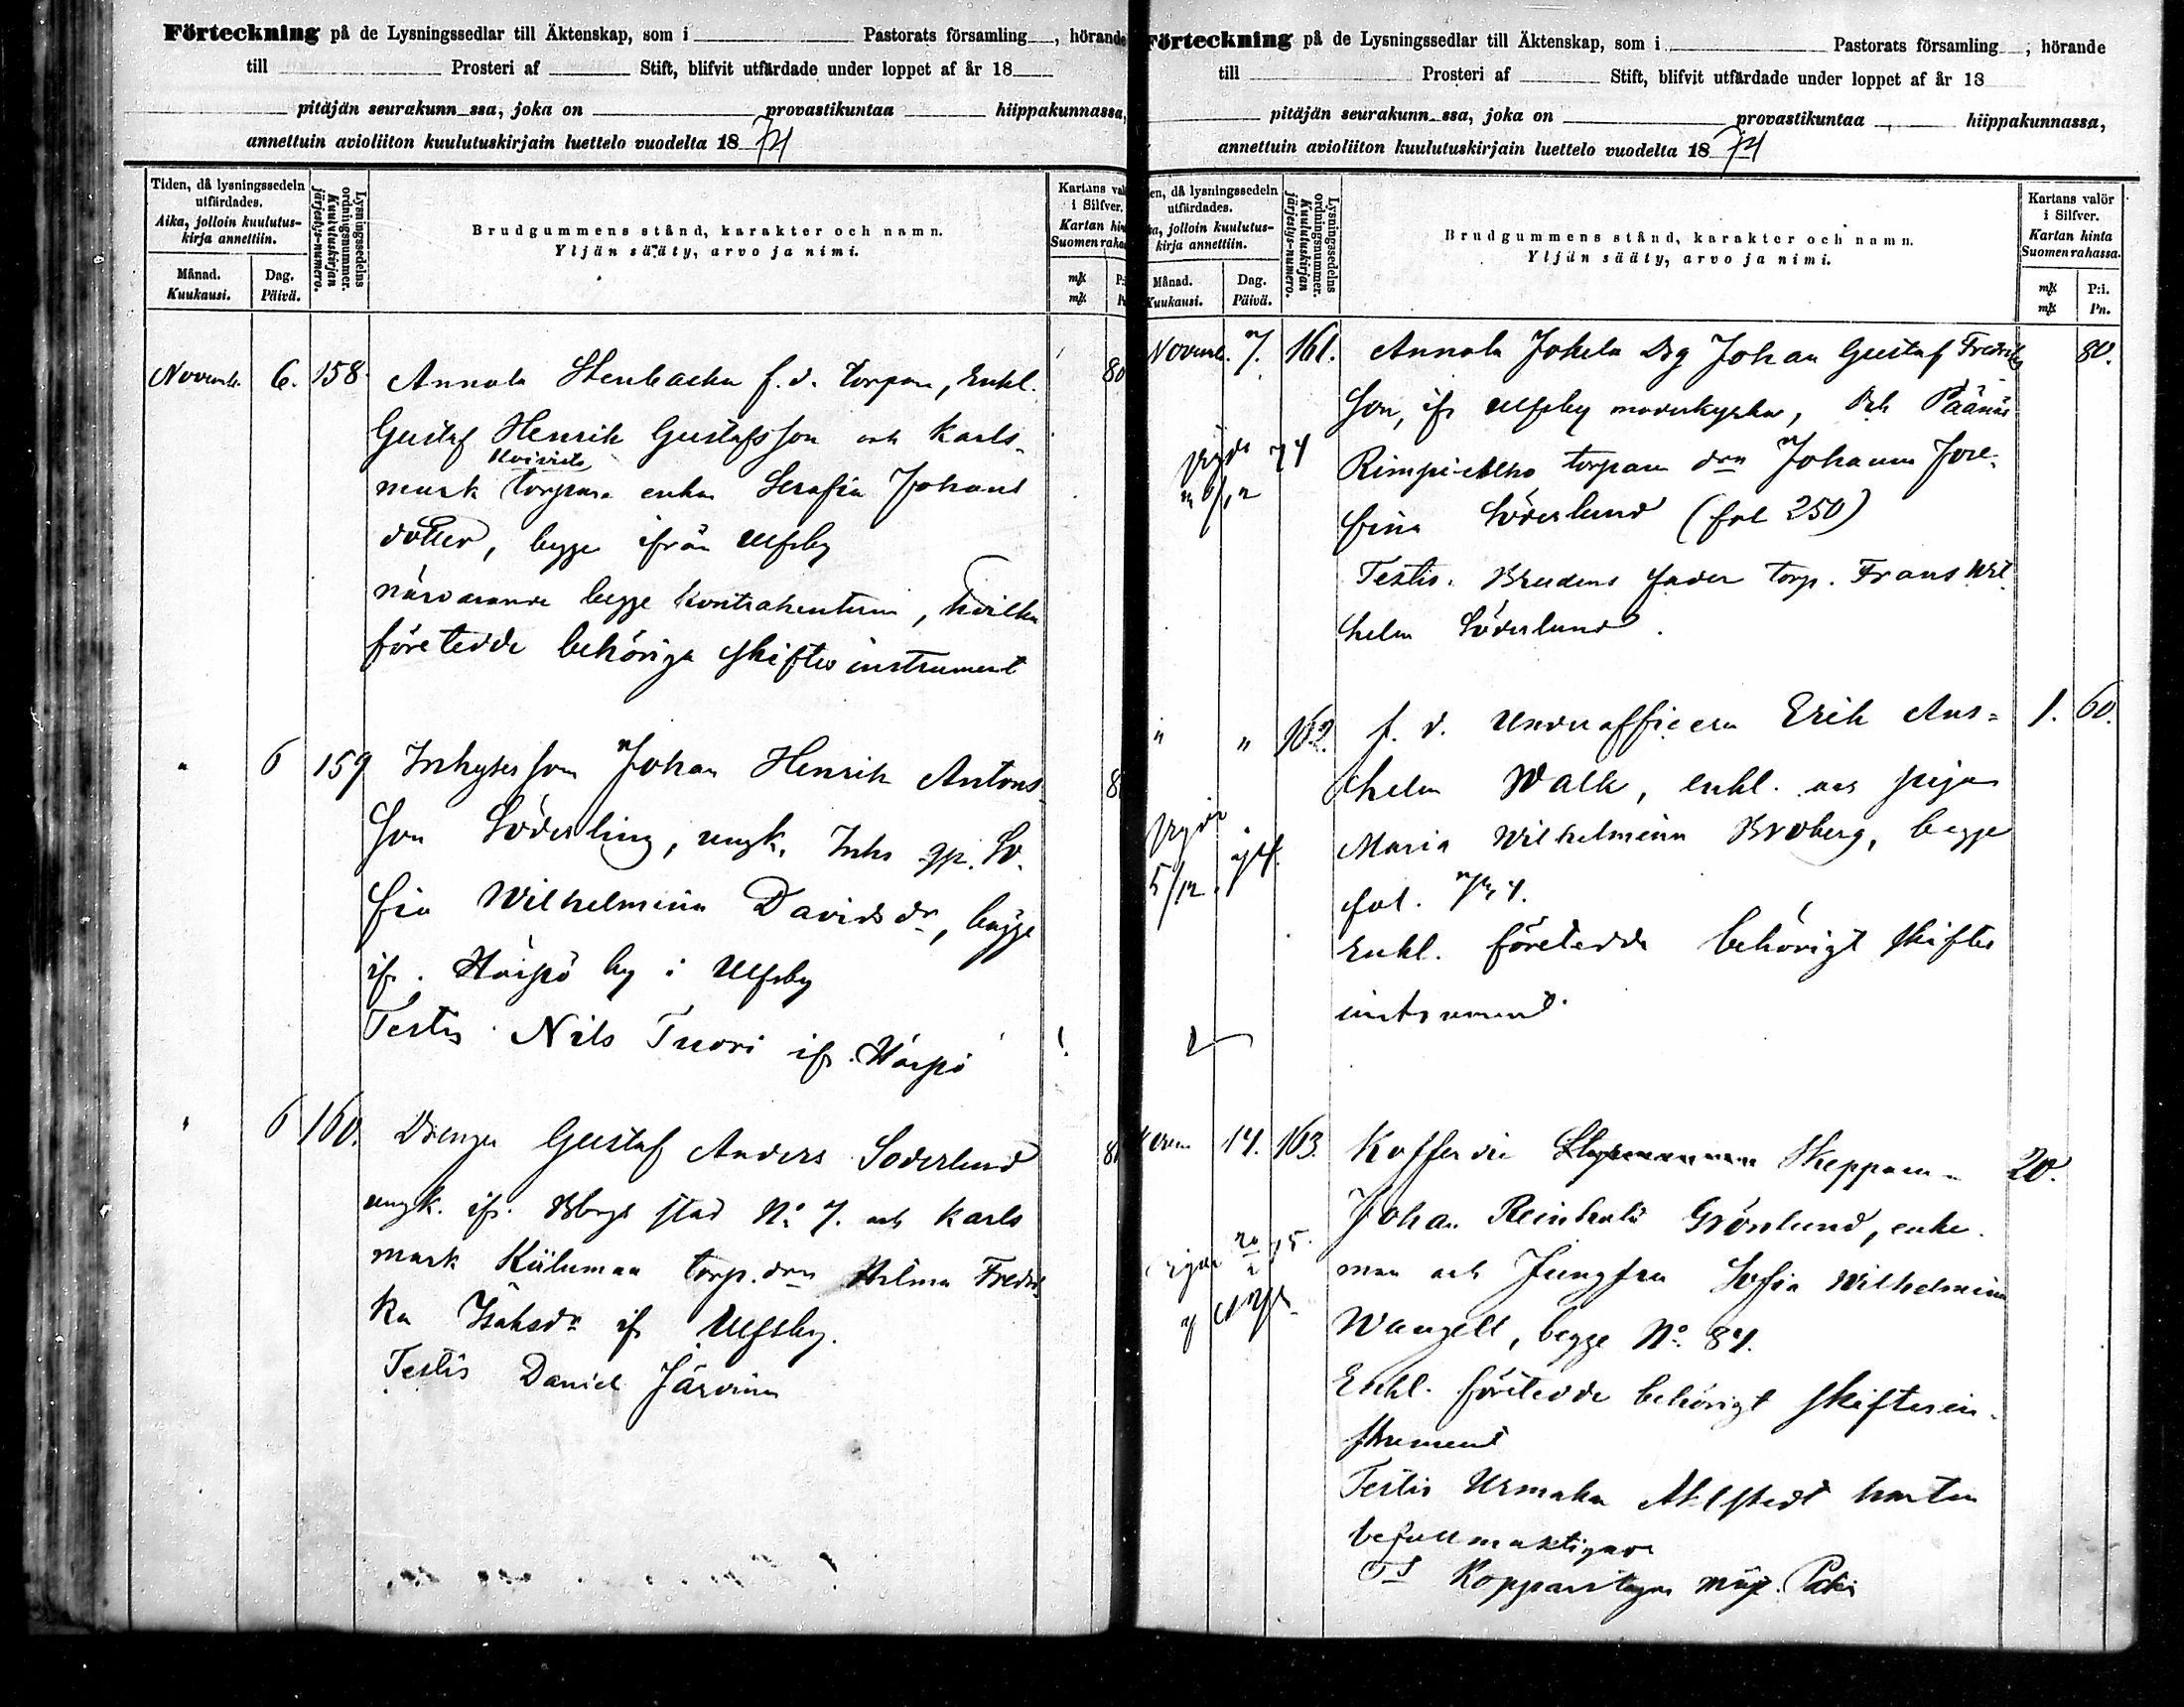 Förteckning på de Lysningssedlar till Äktenskap, som i Pastorats församling , hörande
till Prosteri af Stift, blifvit utfärdade under loppet af år 18
pitäjän seurakunn ssa, joka on provastikuntaa hiippakunnassa,
annettuin avioliiton kuulutuskirjain luettelo vuodelta 1874
Tiden, då lysningssedeln
utfärdades.
Aika, jolloin kuulutus-
kirja annettiin.
Månad.
Kuukausi.
Dag.
Päivä.
Lysningssedelns
ordningsnummer.
Kuulutuskirjan
järjestys-numero.
Brudgummens stånd, karakter och namn.
Yljän sääty, arvo ja nimi.
Kartans val
i Silfver.
Kartan hin
Suomen raha
mk
mk
Novemb. 6. 158. Annala Stenbacka f.d. torpare, Enkl. 80
Gustaf Henrik Gustafsson och Karls-
Koivisto
mark torpare enkan Serafia Johans
dotter, begge ifrån Ulfsby
närvarande begge Kontrahenterne, hvilka
företedde behöriga skiftes instrument
" 6 159 Inhyses son Johan Henrik Antons-
son Söderling, ungk. Inhs gp. So-
fia Wilhelmina Davidsdr, begge
ifr. Harjo by i Ulfsby
Testis Nils Tuori ifr. Harjo
" 6 160. Drengen Gustaf Anders Soderlund
ungk. ifr. Bbrgs stad No 7. och Karls
mark torp. drn Hilma Fredri-
ka Isaksdr ifr Ulfsby.
Testis Daniel Järvinen
Förteckning på de Lysningssedlar till Äktenskap, som i Pastorats församling , hörande
till Prosteri af Stift, blifvit utfärdade under loppet af år 18
pitäjän seurakunn ssa, joka on provastikuntaa hiippakunnassa,
annettuin avioliiton kuulutuskirjain luettelo vuodelta 1874
en, då lysningssedeln
utfärdades.
jolloin kuulutus-
kirja annettiin.
Månad.
Kuukausi.
Dag.
Päivä.
Lysningssedelns
ordningsnummer.
Kuulutuskirjan
järjestys-numero.
Brudgummens stånd, karakter och namn.
Yljän sääty, arvo ja nimi.
Kartans valör
i Silfver.
Kartan hinta
Suomen rahassa.
mk P:i.
mk Pn.
Novemb. 7. 161. Annala Jokela Dg Johan Gustaf Fredriks 80.
son, ifr Ulfsby moderkyrka, och
torpare drn Johanna Jose-
fina Söderlund (fol 250)
Testis. Brudens fader torp. Frans Wil
helm Söderlund.
" " 162. f. d. Underofficern Erik Ans= 1. 60.
helm Walk, enkl. och pigan
Maria Wilhelmina Broberg, begge
5/12
fol.
Enkl. företedde behörigt skiftes
instrument
14. 163. Kofferdie Skepparen 20.
Johan Reinhold Grönlund, enke-
man och Jungfru Sofia Wilhelmina
Wangell, begge No 84.
Enkl. företedde behörigt skiftesin-
strument
Testis Urmakar Ahlstedt
befullmäktigare